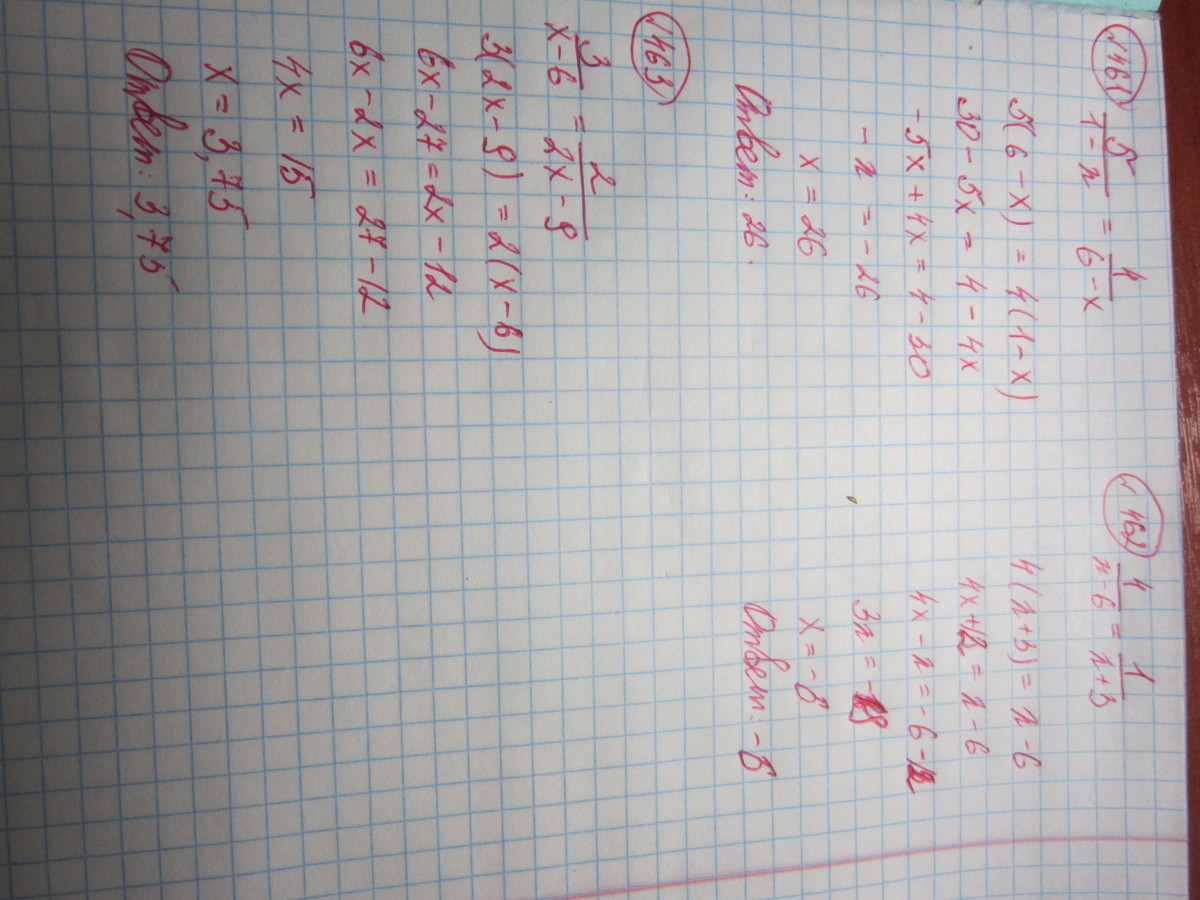 №461
5/(1-x) = 4/(6-x)
5(6-x) = 4(1-x)
30-5x = 4-4x
-5x+4x = 4-30
-x = -26
x = 26
Ответ: 26.
№462
4/(x-6) = 1/(x+3)
4(x+3) = x-6
4x+12 = x-6
4x-x = -6-12
3x = -18
x = -6
Ответ: -6
№463
3/(x-6) = 2/(2x-9)
3(2x-9) = 2(x-6)
6x-27 = 2x-12
6x-2x = 27-12
4x = 15
x = 3,75
Ответ: 3,75